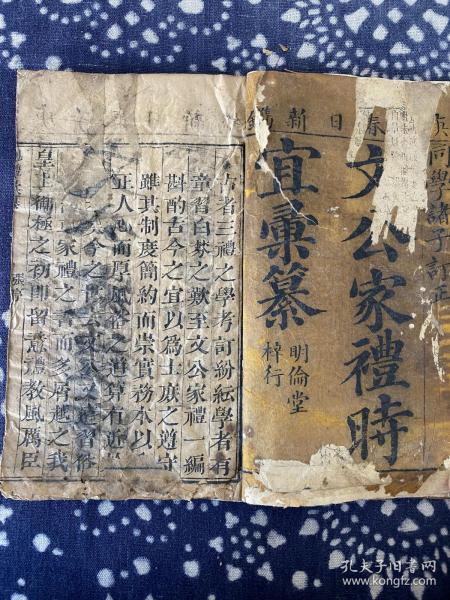 春日新鐫
同學諸子訂正
文公家禮時
宜彙纂
明倫堂
梓行
古者三禮之學考訂紛紜學者有
童習白棼之歎至文公家禮一編
斟酌古今之宜以為士庶之遵守
雖其制度簡約而崇實務本以
正人心而厚風俗之道莫有近
今之去文公遠習俗
家禮之書而多屑越之我
皇上御極之初即留意禮教風厲臣
孔夫子旧书网
www.kongfz.com